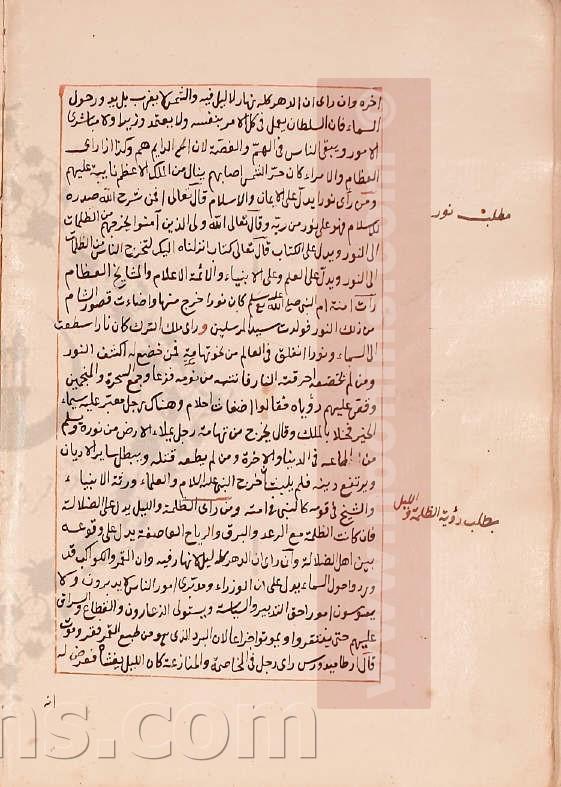 اخره وان راى ان الدهر كله نهار لا ليل فيه والشمس لا تغرب بل يدور حول
السماء فان السلطان يعمل فى كل الامر بنفسه ولا يعتمد وزيرا ولا مباشرى
الامور ويبقى الناس فى الهم والغصة لان الحر الدايم هم وكذا اذا راى
العظام والامراء كان حر الشمس اصابهم ينال من الملك الاعظم نايبة عليهم
ومن راى نورا يدل على الايمان والاسلام قال تعالى افمن شرح الله صدره
للاسلام فهو على نور من ربه وقال تعالى الله ولى الذين آمنوا يخرجهم من الظلمات
الى النور ويدل على الكتاب قال تعالى كتاب انزلناه اليك لتخرج الناس من الظلمات
الى النور ويدل على العلم وعلى الانبياء والائمة الاعلام والمشايخ العظام
رات امنة ام النبى صلى الله عليه وسلم كان نورا خرج منها واضاءت قصور الشام
من ذلك النور فولدت سيد المرسلين وراى ملك الترك كان نارا سطعت
الى السماء ونورا انفلق فى العالم من نحو تهامة فمن خضع له اكتنف النور
ومن لم يخضعه احرقته النار فانتبه من نومه فزعا وجمع السحرة والمنجمين
وقص عليهم رؤياه فقالوا اضغاث احلام وهناك رجل معتبر عليه سيماء
الخير فخلا بالملك وقال يخرج من تهامة رجل يملاء الارض من نوره ويسلم
من اطاعه فى الدنيا والاخرة ومن لم يطعه قتله ويبطل ساير الاديان
ويرتفع دينه فلم يلبث ان خرج النبى عليه السلام والعلماء ورثة الانبياء
والشيخ فى قومه كالنبى فى امته ومن راى الظلمة والليل يدل على الضلالة
فان كانت الظلمة مع الرعد والبرق والرياح العاصفة يدل على وقوعه
بين اهل الضلالة وان راى ان الدهر كله ليل لا نهار فيه وان القمر والكواكب قد
يدور حول السماء يدل على ان الوزراء ومدبرى امور الناس لا يدبرون ولا
امور احق التدبير والسياسة ويستولى الذعارون والقطاع والسراق
عليهم حتى يفتقروا ويموتوا جزعا لان البرد الذى هو من طبع القمر فقر وموت
قال ارطاميدورس راى رجل فى الخاصمة والمنازعة كان الليل يغشاه فعرض له
مطلب نور
مطلب رؤية الظلمة والليل
انه